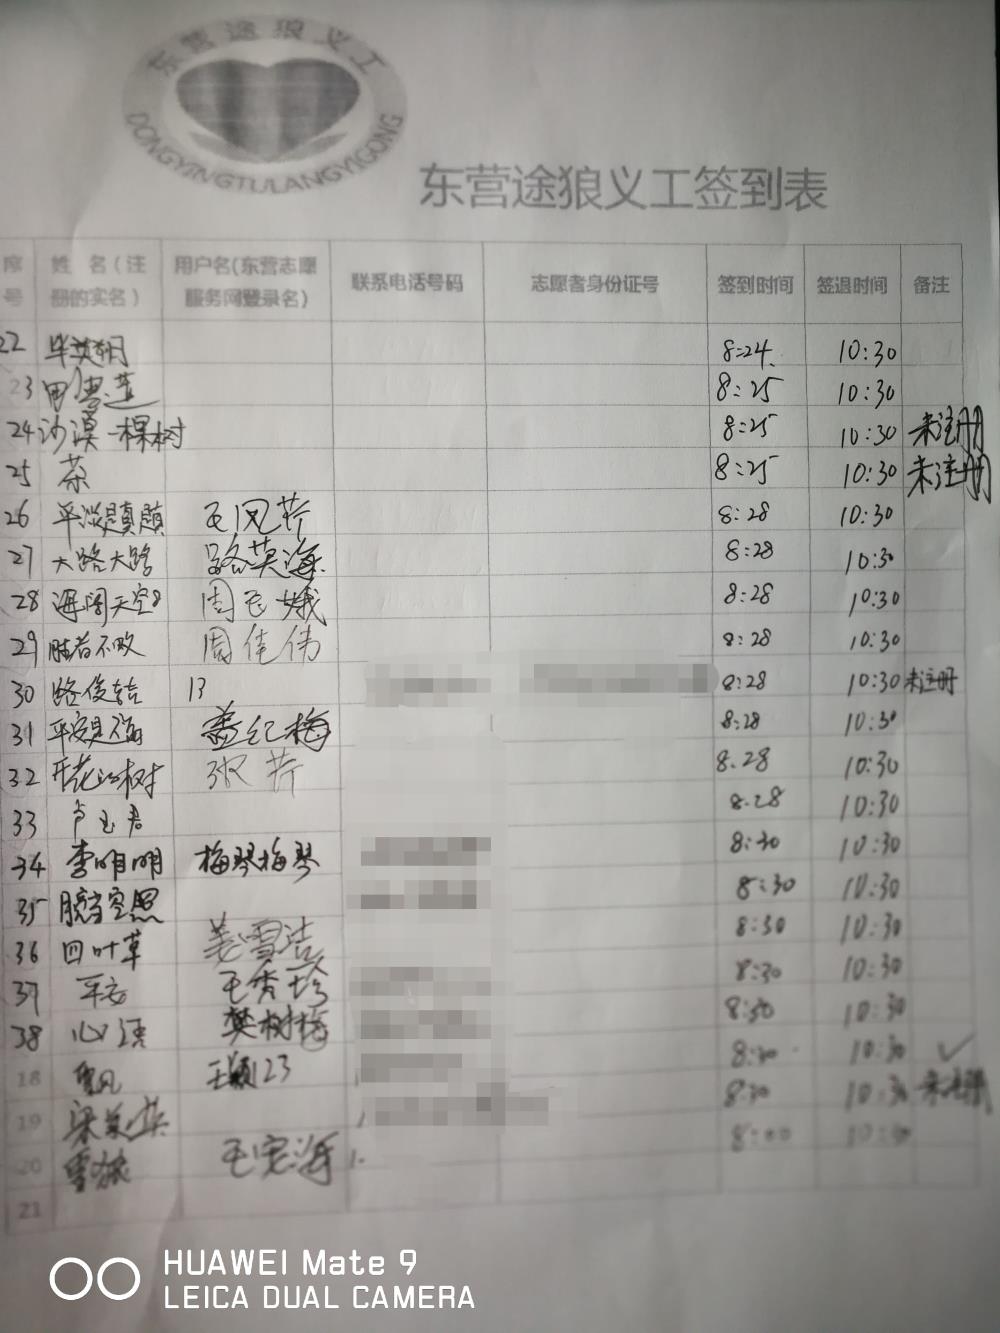 东营途狼义工
DONGYINGTULANGYIGONG
东营途狼义工签到表
序号 姓 名（注册的实名） 用户名(东营志愿服务网登录名) 联系电话号码 志愿者身份证号 签到时间 签退时间 备注
22 毕英明 8:24 10:30
23 8:25 10:30
24 沙漠一棵树 8:25 10:30 未注册
25 茶 8:25 10:30 未注册
26 平淡是真 王风芹 8:28 10:30
27 大路大路 路英海 8:28 10:30
28 海阔天空8 周飞娥 8:28 10:30
29 胜者不败 周佳伟 8:28 10:30
30 路俊 13 8:28 10:30 未注册
31 平安是福 盖纪梅 8:28 10:30
32 开花的树 张芹 8.28 10:30
33 卢玉君 8.28 10:30
34 李明明 梅琴梅琴 8:30 10:30
35 空照 8:30 10:30
36 四叶草 姜雪洁 8:30 10:30
37 平安 王秀珍 8:30 10:30
38 心语 樊树梅 8:30 10:30
18 王颖23 8:30 10:30 ✓
19 梁英 8:30 10:30 未注册
20 雪狼 王宪海 8:00 10:30
21
HUAWEI Mate 9
LEICA DUAL CAMERA